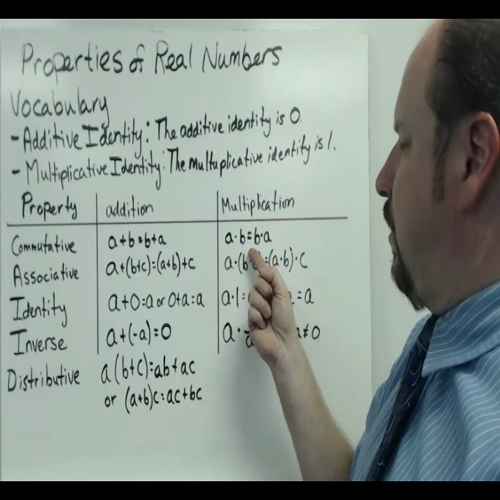 Properties of Real Numbers
Vocabulary
- Additive Identity: The additive identity is 0.
- Multiplicative Identity: The multiplicative identity is 1.
Property addition Multiplication
Commutative a+b=b+a a·b=b·a
Associative a+(b+c)=(a+b)+c a·(b· =(a·b)·c
Identity a+0=a or 0+a=a a·1= =a
Inverse a+(-a)=0 a· ≠0
Distributive a(b+c)=ab+ac
or (a+b)c=ac+bc